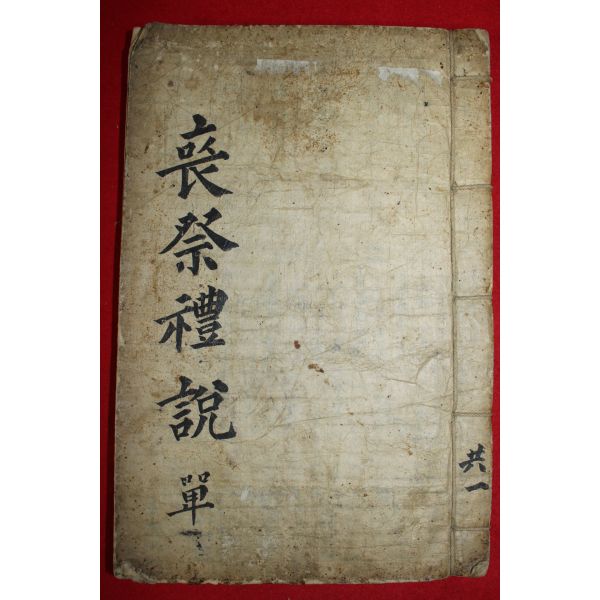 喪祭禮說 單
共一